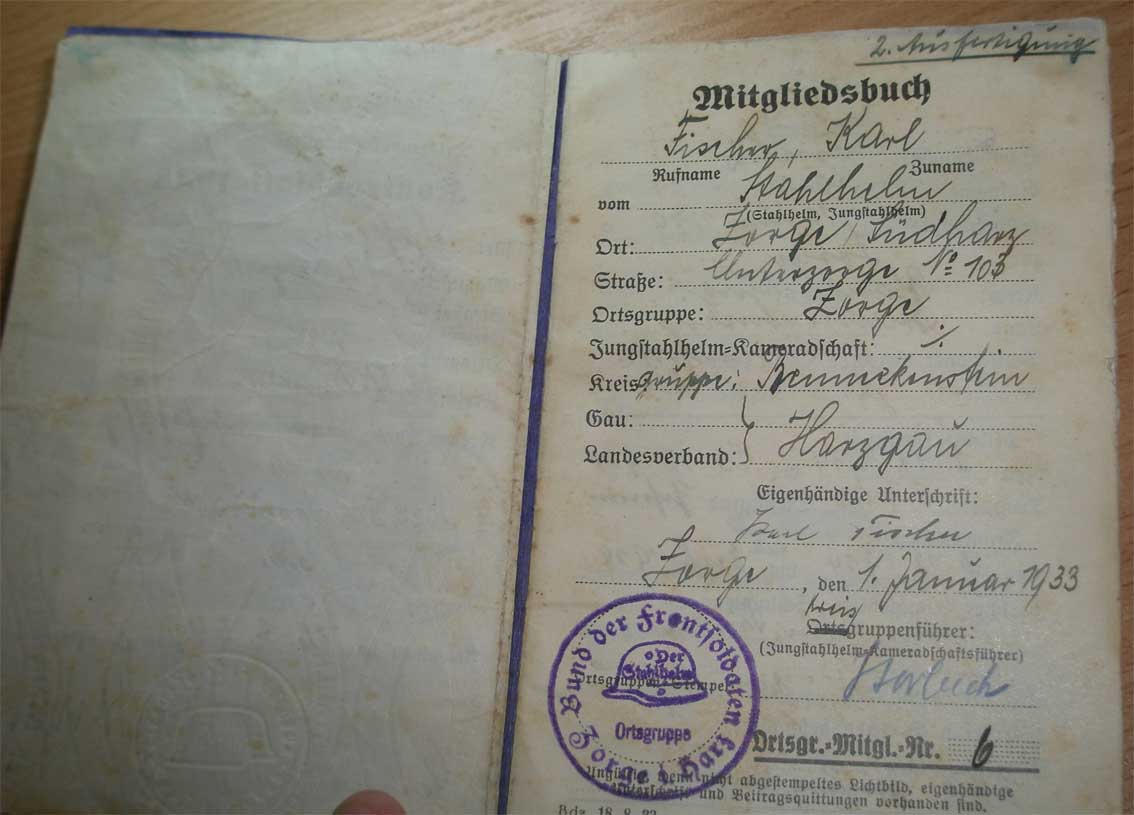 2. Ausfertigung
Mitgliedsbuch
Fischer, Karl
Rufname Zuname
vom Stahlhelm
(Stahlhelm, Jungstahlhelm)
Ort: Zorge / Südharz
Straße: Unterzorge No 103
Ortsgruppe: Zorge
Jungstahlhelm-Kameradschaft:
Kreisgruppe: Benneckenstein
Gau:
Landesverband: } Harzgau
Eigenhändige Unterschrift:
Karl Fischer
Zorge, den 1. Januar 1933
Kreis
Ortsgruppenführer:
(Jungstahlhelm-Kameradschaftsführer)
Ortsgruppen-Stempel
Bund der Frontsoldaten
Der
Stahlhelm
Ortsgruppe
Zorge / Harz
Ortsgr.-Mitgl.-Nr. 6
Ungültig, wenn nicht abgestempeltes Lichtbild, eigenhändige
Unterschrift und Beitragsquittungen vorhanden sind.